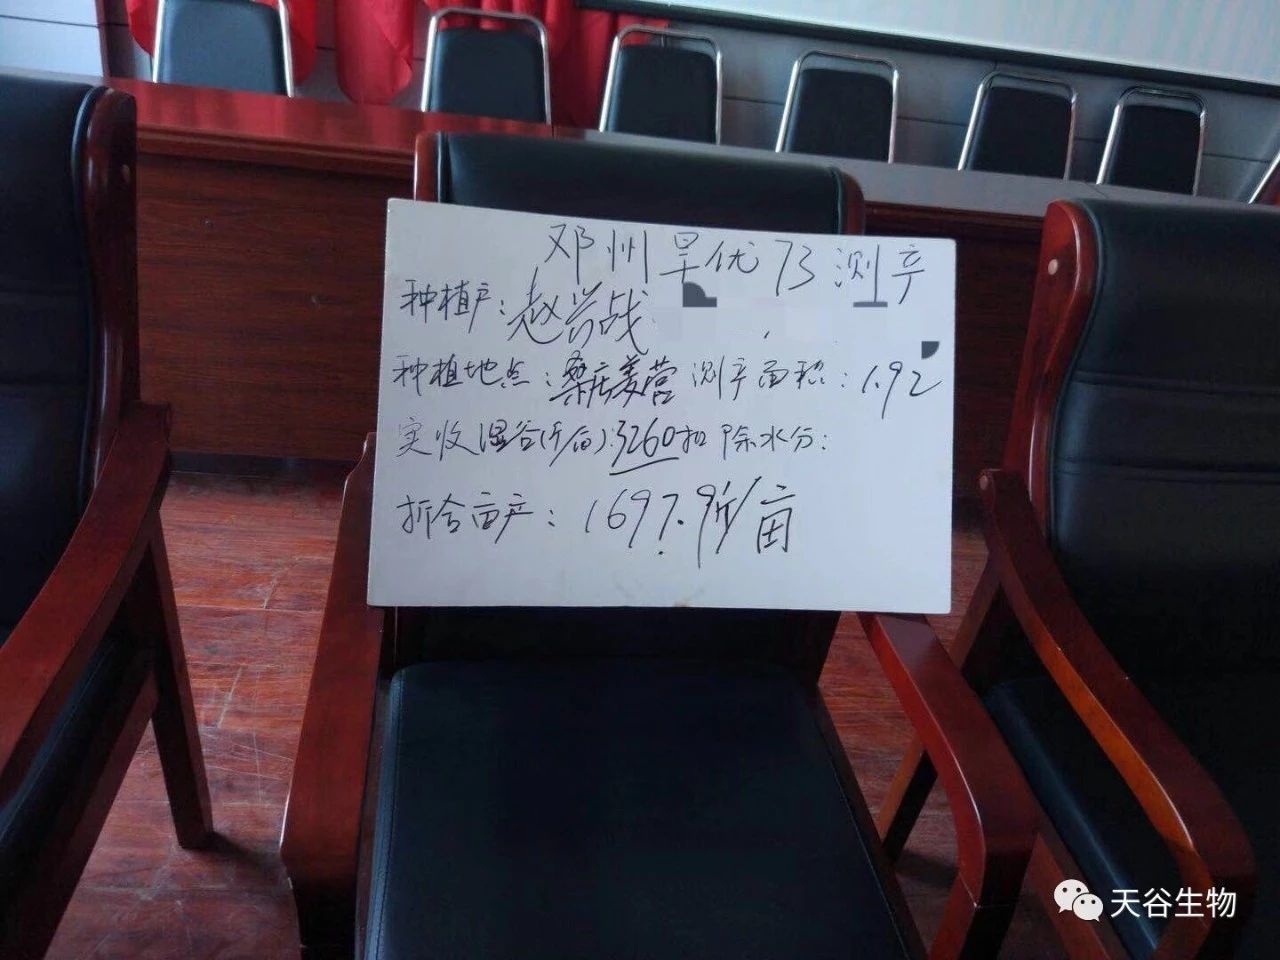 邓州旱优73测产
种植户：赵兴战
种植地点：桑庄姜营 测产面积：1.92
实收湿谷(斤):3260扣除水分：
折合亩产：1697.9斤/亩
天谷生物